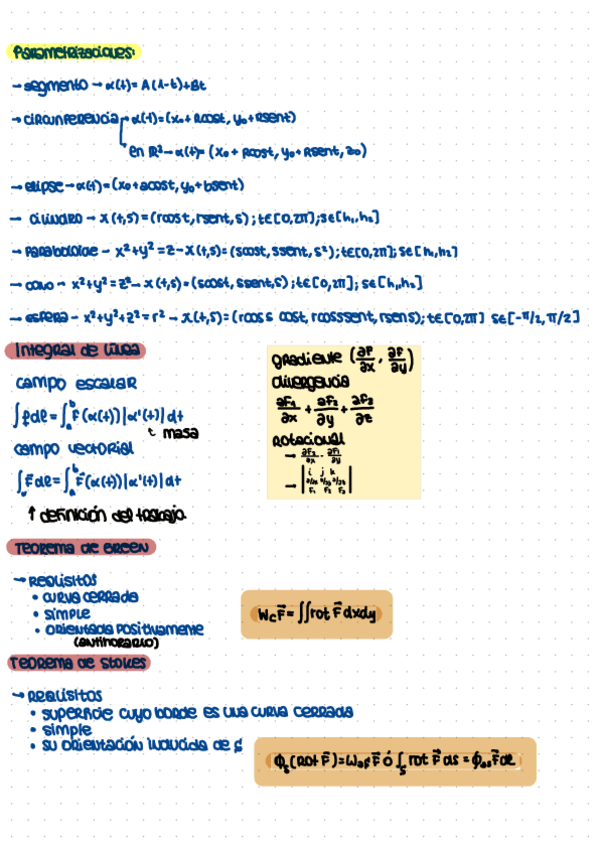 Parametrizaciones:
→ segmento → α(t) = A(1-t)+Bt
→ circunferencia → α(t)=(x₀+Rcost, y₀+Rsent)
en R³ → α(t)= (x₀ + Rcost, y₀+Rsent, z₀)
→ elipse → α(t)=(x₀+acost, y₀+bsent)
→ cilindro → X(t,s)=(rcost, rsent, s); t∈[0,2π]; s∈[h₁,h₂]
→ Paraboloide - x²+y²=z - X(t,s)=(scost, ssent, s²); t∈[0,2π]; s∈[h₁,h₂]
→ cono - x²+y²=z² - X(t,s)=(scost, ssent, s); t∈[0,2π]; s∈[h₁,h₂]
→ esfera - x²+y²+z²=r² → X(t,s)=(rcoss cost, rcosssent, rsens); t∈[0,2π] s∈[-π/2, π/2]
Integral de línea
campo escalar
∫fdl=∫ₐᵇ F(α(t))|α'(t)|dt
↑ masa
campo vectorial
∫F⃗dl=∫ₐᵇ F⃗(α(t))|α'(t)|dt
↑ definición del trabajo
gradiente (∂F/∂x, ∂F/∂y)
divergencia
∂F₁/∂x + ∂F₂/∂y + ∂F₃/∂z
Rotacional
→ ∂F₂/∂x - ∂F₁/∂y
→ | i j k
∂/∂x ∂/∂y ∂/∂z
F₁ F₂ F₃ |
Teorema de Green
→ Requisitos
• curva cerrada
• simple
• orientada positivamente
(antihorario)
W_C F⃗ = ∫∫rot F⃗ dxdy
Teorema de Stokes
→ Requisitos
• superficie cuyo borde es una curva cerrada
• simple
• su orientación inducida de S
ϕ_S(Rot F⃗)=ω_∂S F⃗ ó ∫_S rot F⃗ ds = ∮_∂S F⃗dl